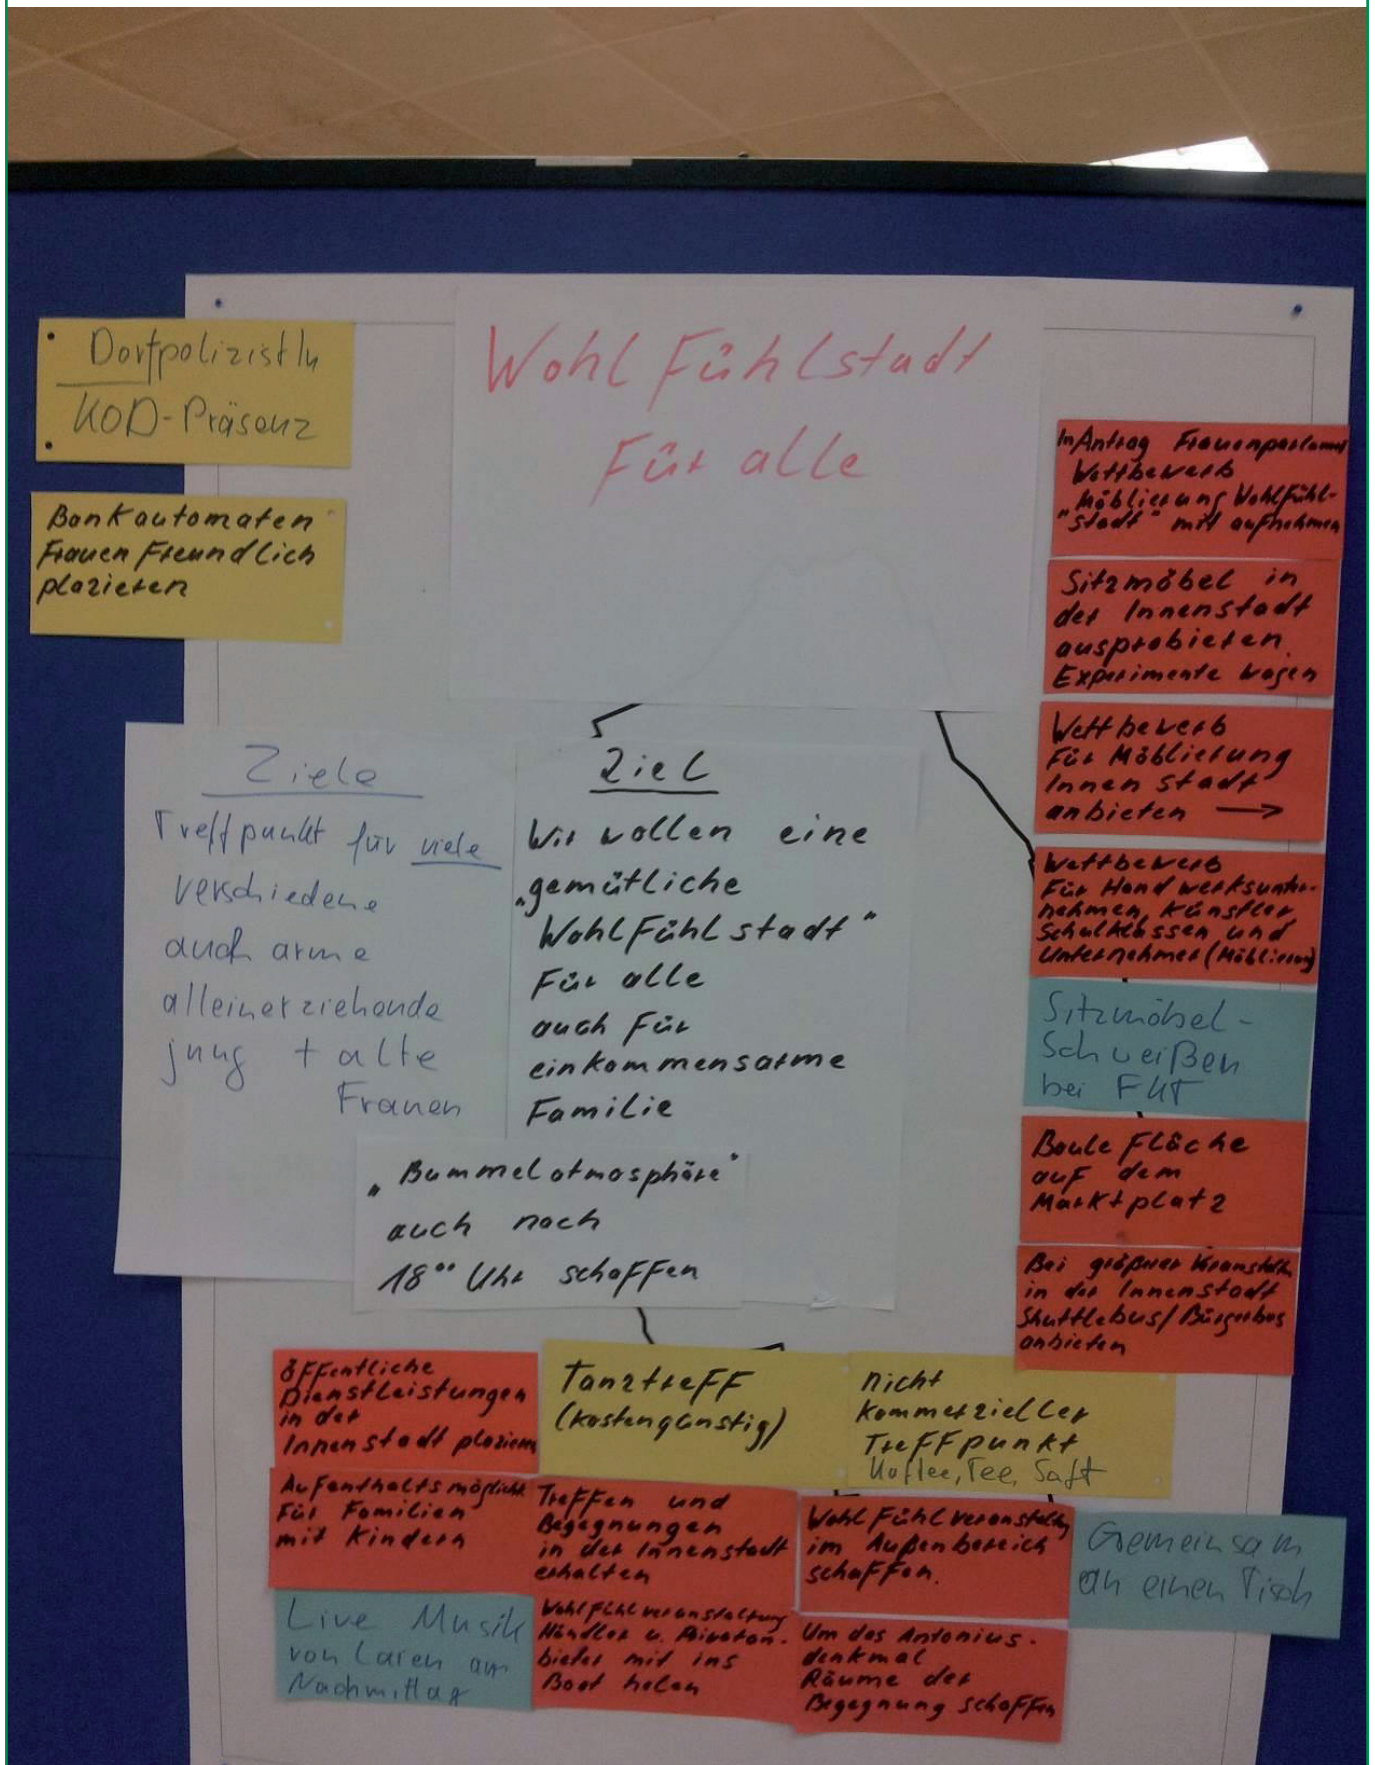 Wohlfühlstadt
Für alle
DorfpolizistIn
KOD-Präsenz
Bankautomaten
Frauen Freundlich
plazieren
Ziele
Treffpunkt für viele
verschiedene
auch arme
alleinerziehende
jung + alte
Frauen
Ziel
Wir wollen eine
„gemütliche
Wohlfühlstadt"
Für alle
auch Für
einkommensarme
Familie
„Bummelatmosphäre"
auch noch
18°° Uhr schaffen
In Antrag Frauenparlament
Wettbewerb
"Möblierung Wohlfühl-
stadt" mit aufnehmen
Sitzmöbel in
der Innenstadt
ausprobieren.
Experimente wagen
Wettbewerb
Für Möblierung
Innen stadt
anbieten →
Wettbewerb
Für Handwerksunter-
nehmen, Künstler,
Schulklassen und
Unternehmer (Möblierung)
Sitzmöbel-
Schweißen
bei
Boule Fläche
auf dem
Marktplatz
Bei größerer
in der Innenstadt
Shuttlebus/Bürgerbus
anbieten
öffentliche
Dienstleistungen
in der
Innenstadt plazieren
Tanztreff
(kostengünstig)
nicht
kommerzieller
Treffpunkt
Kaffee, Tee, Saft
Aufenthaltsmöglichk.
Für Familien
mit Kindern
Treffen und
Begegnungen
in der Innenstadt
erhalten
Wohlfühlveranstaltung
im Außenbereich
schaffen.
Gemeinsam
an einen Tisch
Live Musik
von Laien am
Nachmittag
Wohlfühlveranstaltung
Händler u. Privatan-
bieter mit ins
Boot holen
Um das Antonius-
denkmal
Räume der
Begegnung schaffen